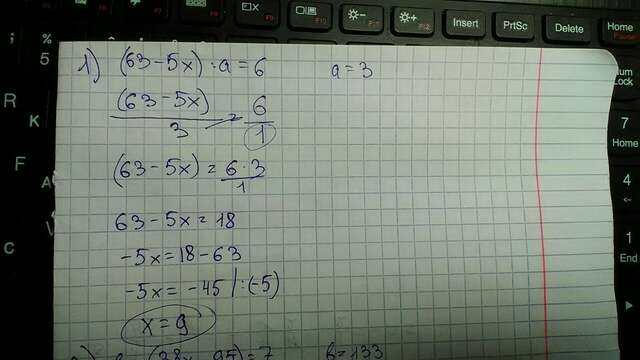 F10
F11
F12
Insert
PrtSc
Delete
Home
Pause
5
%
R
K
F
A
C
Num
Lock
7
Home
4
←
1
End
1) (63-5x):a=6 a=3
(63-5x)/3 = 6/1
(63-5x) = 6·3/1
63-5x=18
-5x=18-63
-5x=-45 |:(-5)
x=9